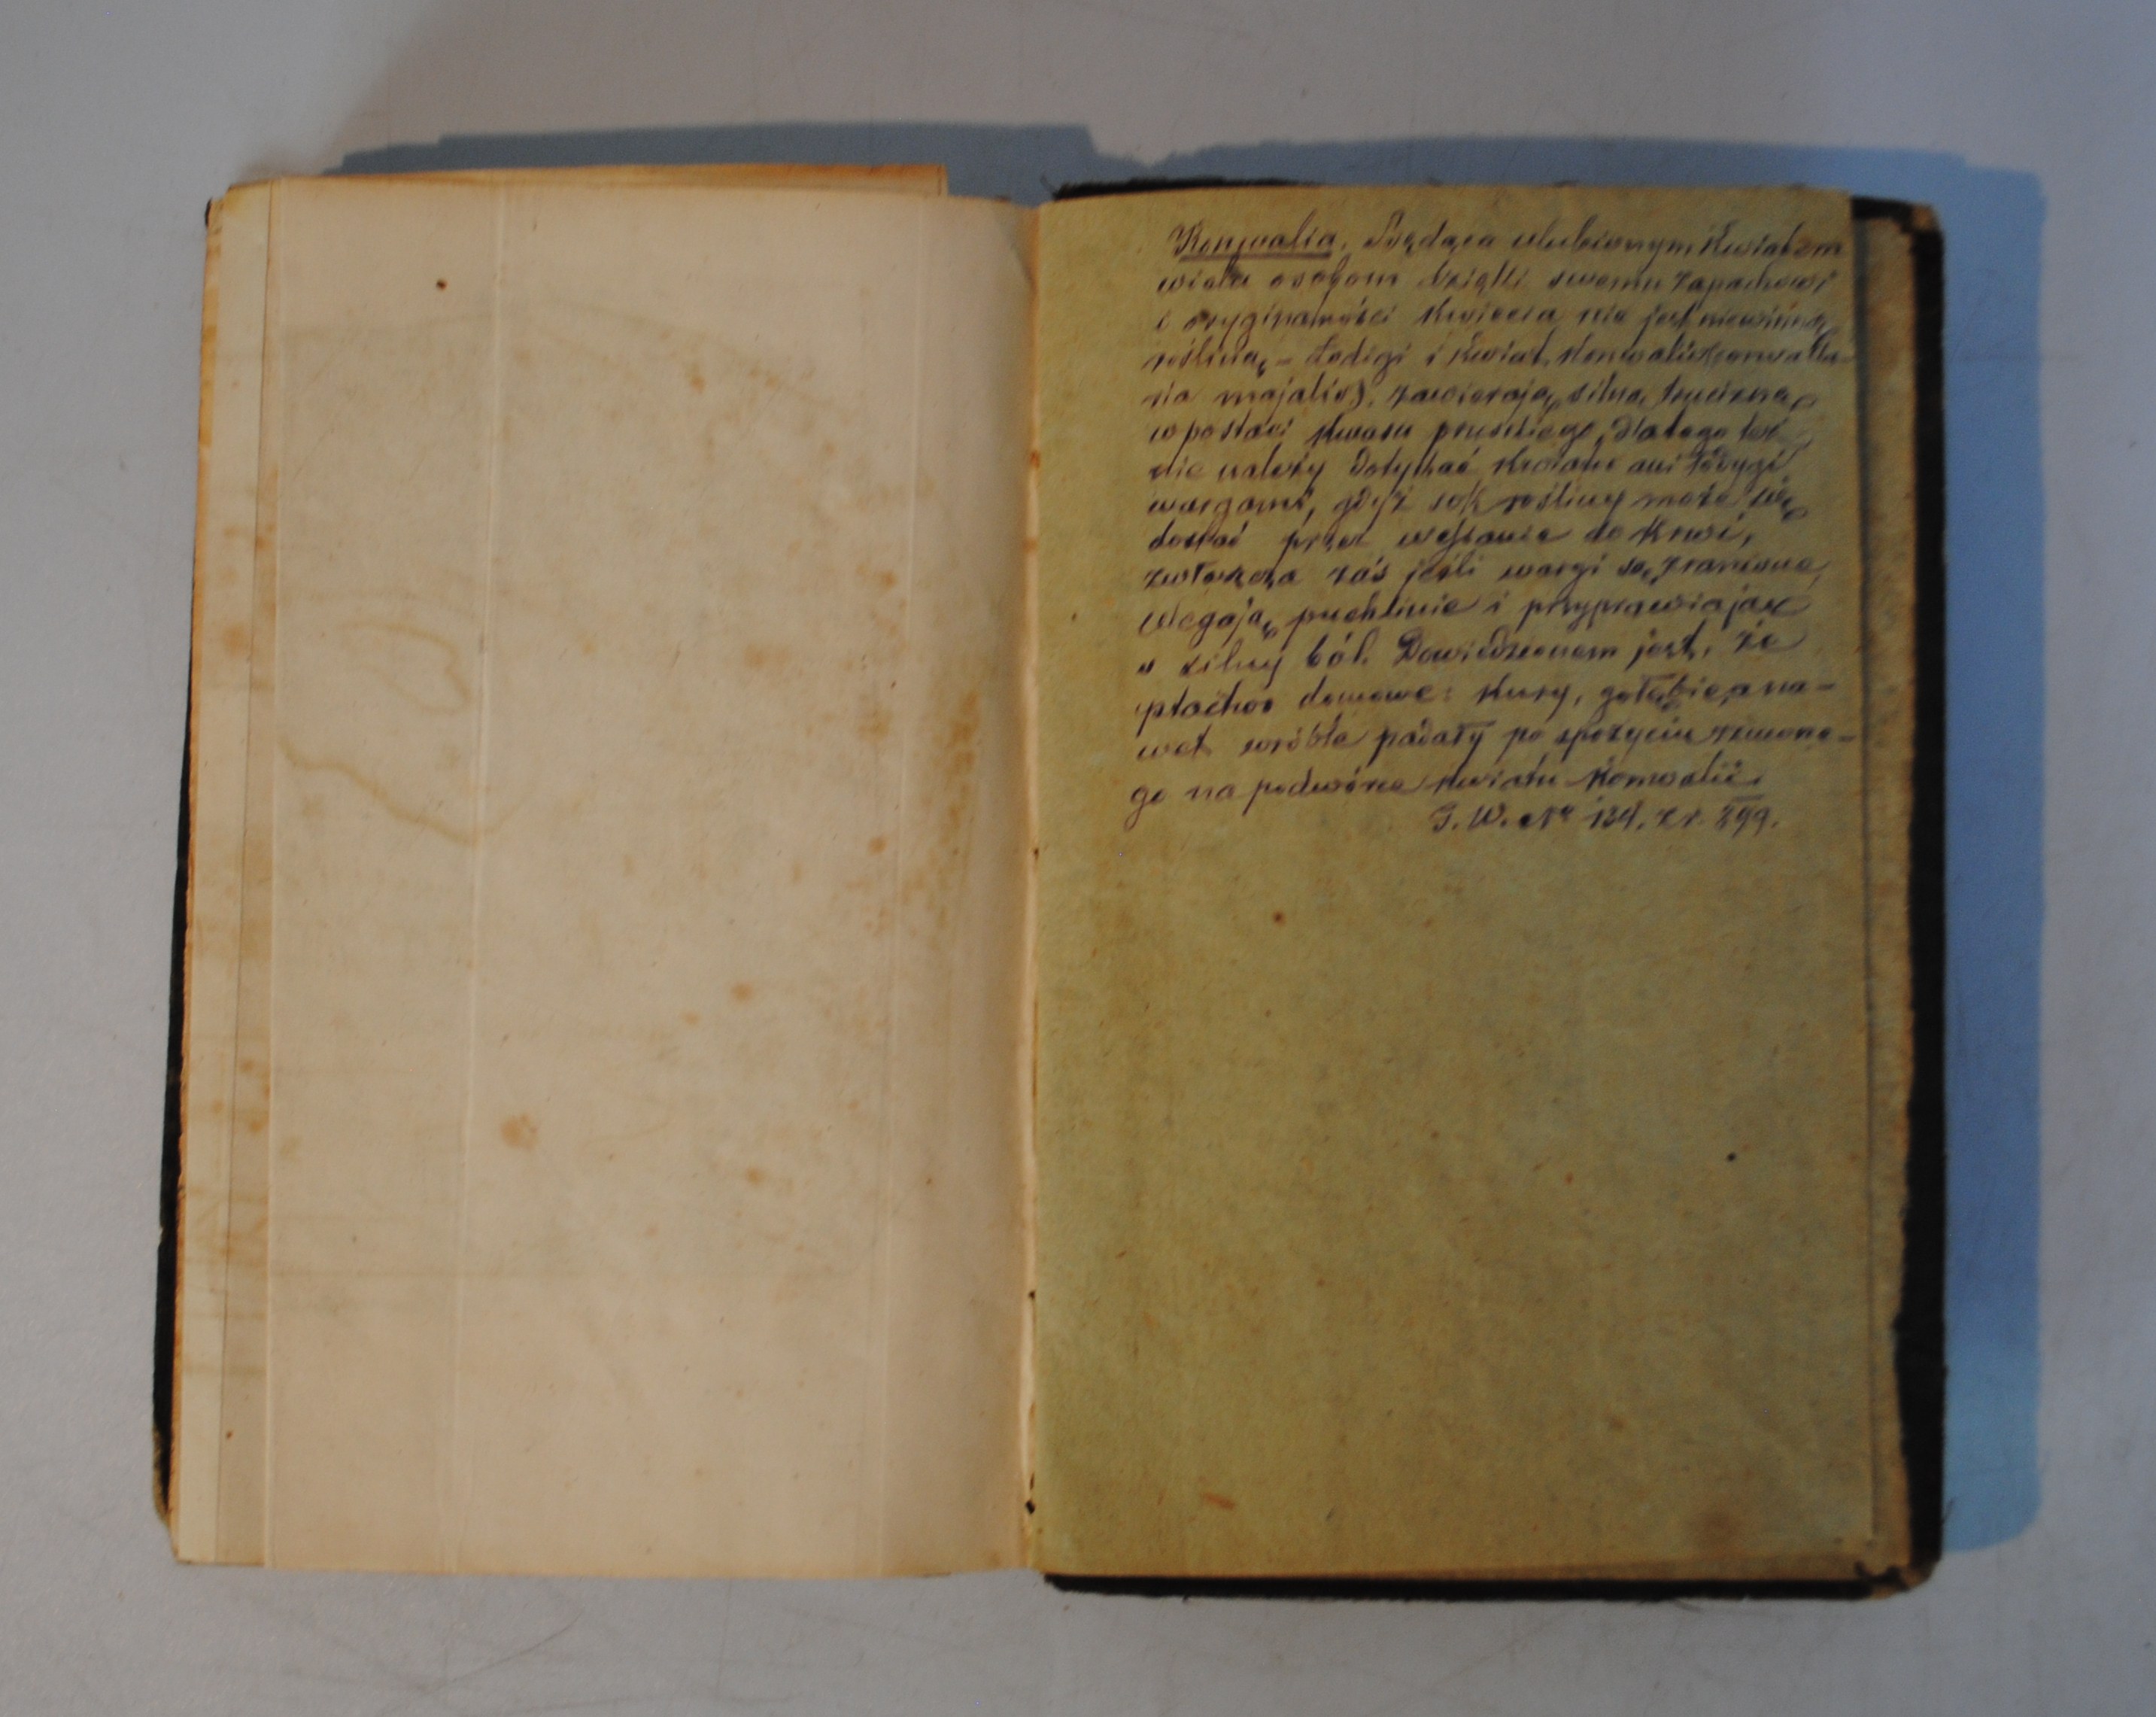 Konwalia, będąca ulubionym kwiatem
wielu osobom dzięki swemu zapachowi
i oryginalności kwiecia nie jest niewinną
rośliną, - Łodigi i kwiat konwalii (Convalla-
ria majalis), zawierają silną truciznę
w postaci kwasu pruskiego, dlatego też
nie należy dotykać kwiatu ani łodygi
wargami, gdyż sok rośliny może się
dostać przez wessanie do krwi,
zwłaszcza zaś jeśli wargi są zranione,
ulegają puchlinie i przyprawiając
o silny ból. Dowiedzionem jest, że
ptactwo domowe: kury, gołębie, a na-
wet wróble padały po spożyciu rzucone-
go na podwórze kwiatu konwalii.
G. W. № 134. z r. 899.